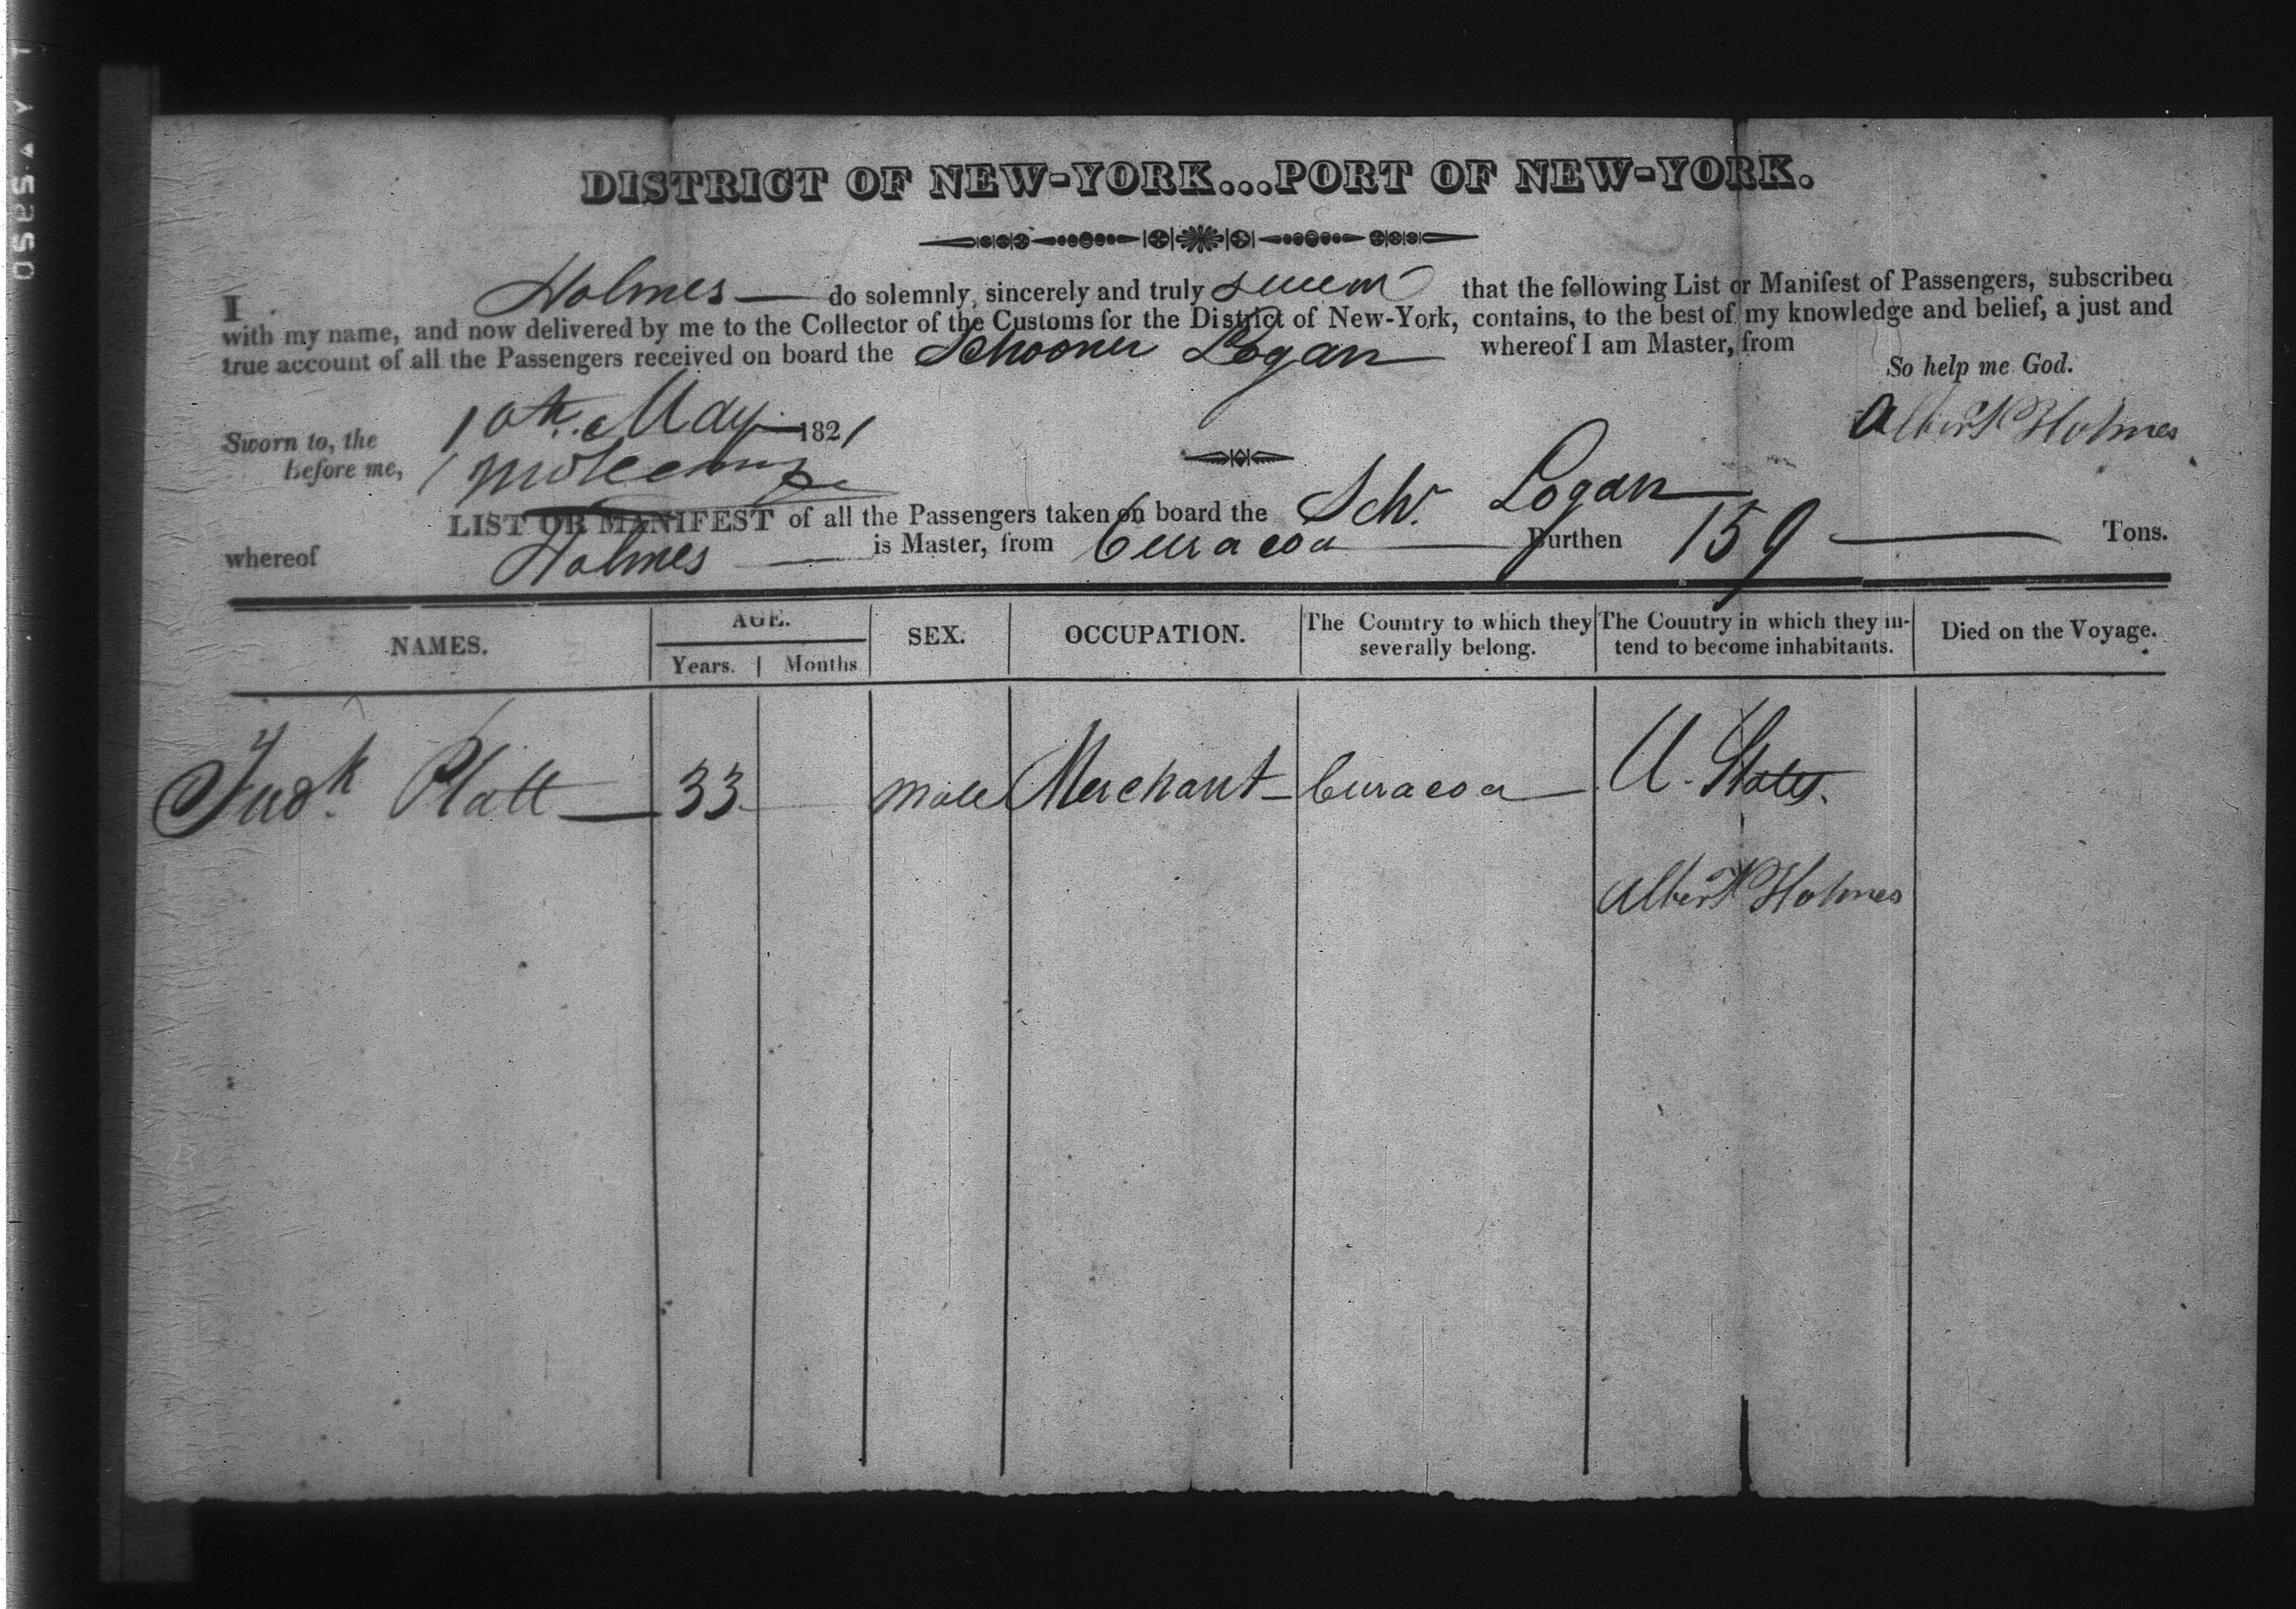 DISTRICT OF NEW-YORK...PORT OF NEW-YORK.
I Holmes — do solemnly, sincerely and truly that the following List or Manifest of Passengers, subscribed
with my name, and now delivered by me to the Collector of the Customs for the District of New-York, contains, to the best of my knowledge and belief, a just and
true account of all the Passengers received on board the Schooner Logan whereof I am Master, from
So help me God.
Albert Holmes
Sworn to, the 10th. May 1821
before me,
LIST OR MANIFEST of all the Passengers taken on board the Schr. Logan
whereof Holmes is Master, from Curacoa Burthen 159 Tons.
NAMES. AGE. SEX. OCCUPATION. The Country to which they severally belong. The Country in which they intend to become inhabitants. Died on the Voyage.
Years. Months
Fredk. Platt 33 Male Merchant Curacoa U. States.
Albert Holmes